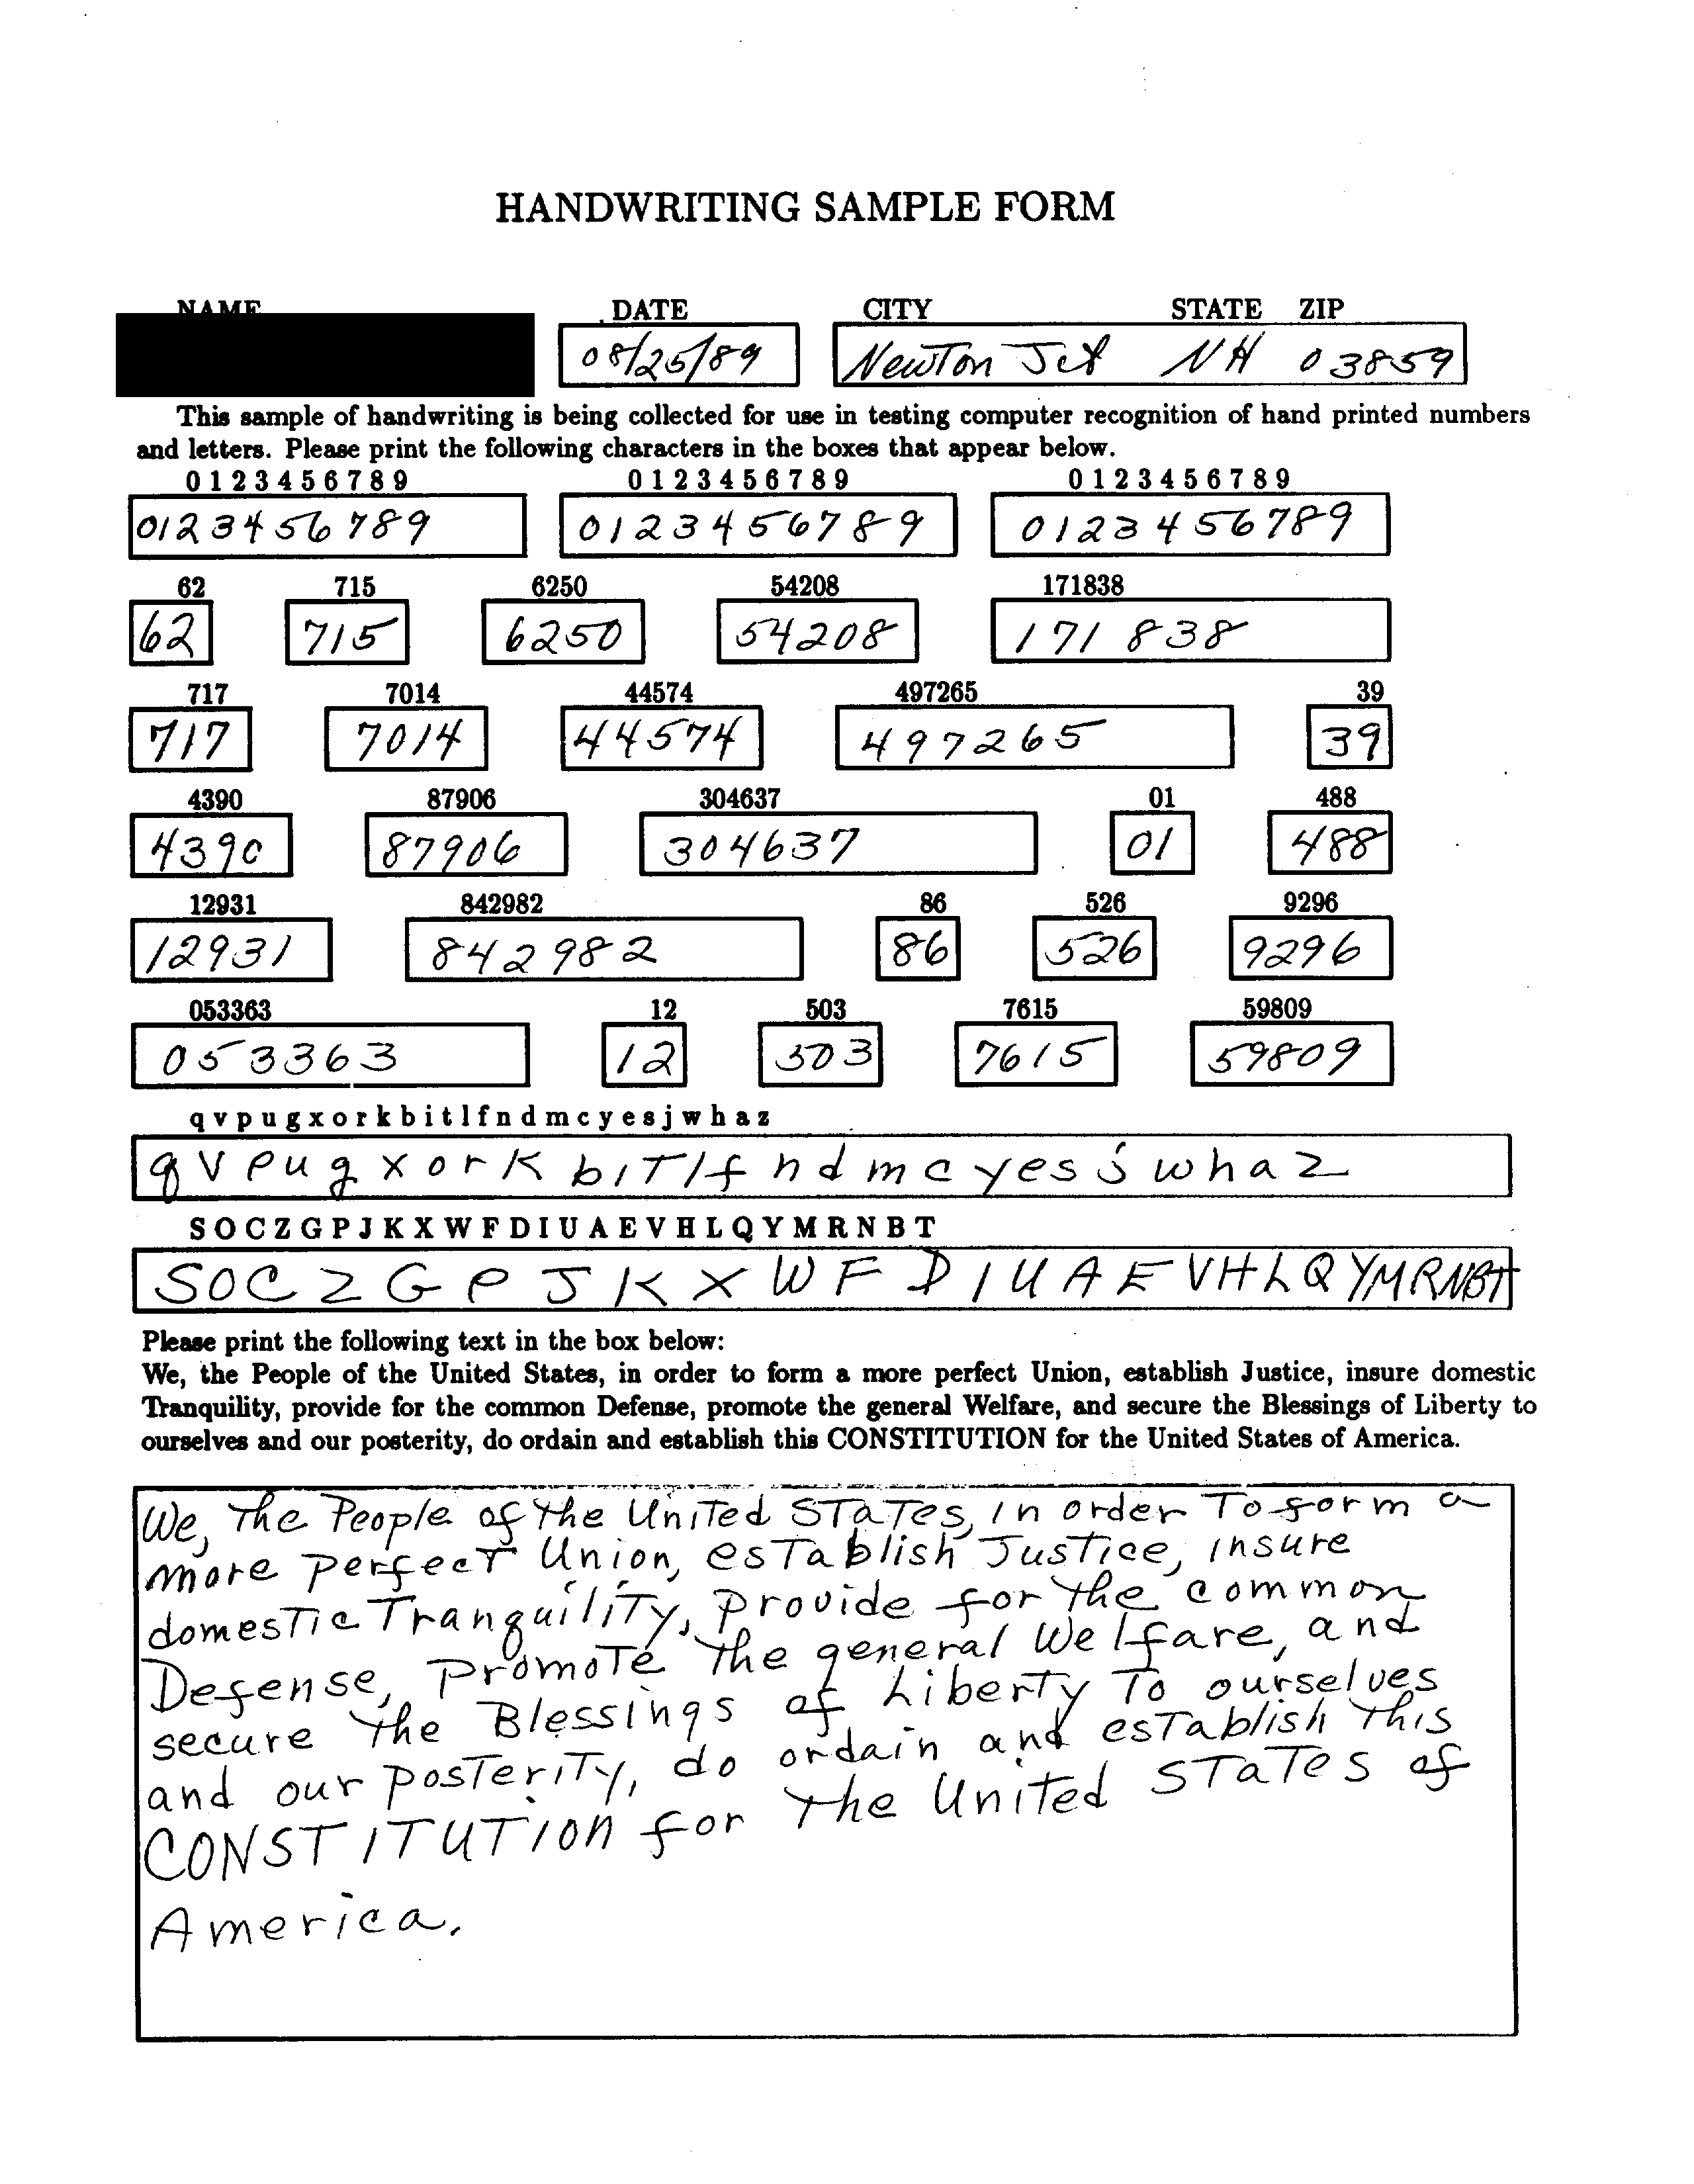 HANDWRITING SAMPLE FORM
NAME DATE CITY STATE ZIP
08/25/89 Newton Jct NH 03859
This sample of handwriting is being collected for use in testing computer recognition of hand printed numbers
and letters. Please print the following characters in the boxes that appear below.
0 1 2 3 4 5 6 7 8 9 0 1 2 3 4 5 6 7 8 9 0 1 2 3 4 5 6 7 8 9
0123456789 0123456789 0123456789
62 715 6250 54208 171838
62 715 6250 54208 171838
717 7014 44574 497265 39
717 7014 44574 497265 39
4390 87906 304637 01 488
4390 87906 304637 01 488
12931 842982 86 526 9296
12931 842982 86 526 9296
053363 12 503 7615 59809
053363 12 503 7615 59809
q v p u g x o r k b i t l f n d m c y e s j w h a z
q v p u g x o r k b i T l f n d m c y e s j w h a z
S O C Z G P J K X W F D I U A E V H L Q Y M R N B T
S O C Z G P J K X W F D I U A E V H L Q Y M R N B T
Please print the following text in the box below:
We, the People of the United States, in order to form a more perfect Union, establish Justice, insure domestic
Tranquility, provide for the common Defense, promote the general Welfare, and secure the Blessings of Liberty to
ourselves and our posterity, do ordain and establish this CONSTITUTION for the United States of America.
We, the People of the United States, in order to form a
more perfect Union, establish Justice, insure
domestic Tranquility, provide for the common
Defense, promote the general Welfare, and
secure the Blessings of Liberty To ourselves
and our posterity, do ordain and establish this
CONSTITUTION for the United States of
America.